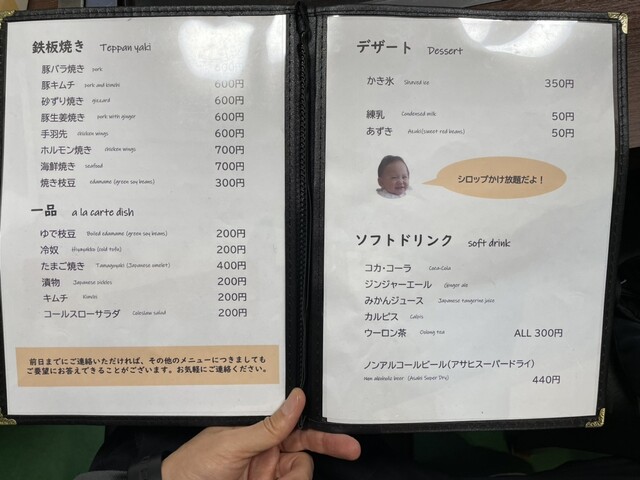 鉄板焼き Teppan yaki
豚バラ焼き pork 600円
豚キムチ pork and kimchi 600円
砂ずり焼き gizzard 600円
豚生姜焼き pork with ginger 600円
手羽先 chicken wings 600円
ホルモン焼き chicken wings 700円
海鮮焼き seafood 700円
焼き枝豆 edamame (green soy beans) 300円
一品 a la carte dish
ゆで枝豆 Boiled edamame (green soy beans) 200円
冷奴 Hiyayakko (cold tofu) 200円
たまご焼き Tamagoyaki (Japanese omelet) 400円
漬物 Japanese pickles 200円
キムチ Kimchi 200円
コールスローサラダ Coleslaw salad 200円
前日までにご連絡いただければ、その他のメニューにつきましても
ご要望にお答えできることがございます。お気軽にご連絡ください。
デザート Dessert
かき氷 Shaved ice 350円
練乳 Condensed milk 50円
あずき Asaki(sweet red beans) 50円
シロップかけ放題だよ！
ソフトドリンク soft drink
コカ・コーラ Coca-Cola
ジンジャーエール Ginger ale
みかんジュース Japanese tangerine juice
カルピス Calpis
ウーロン茶 Oolong tea ALL 300円
ノンアルコールビール(アサヒスーパードライ)
Non alcoholic beer (Asahi Super Dry) 440円